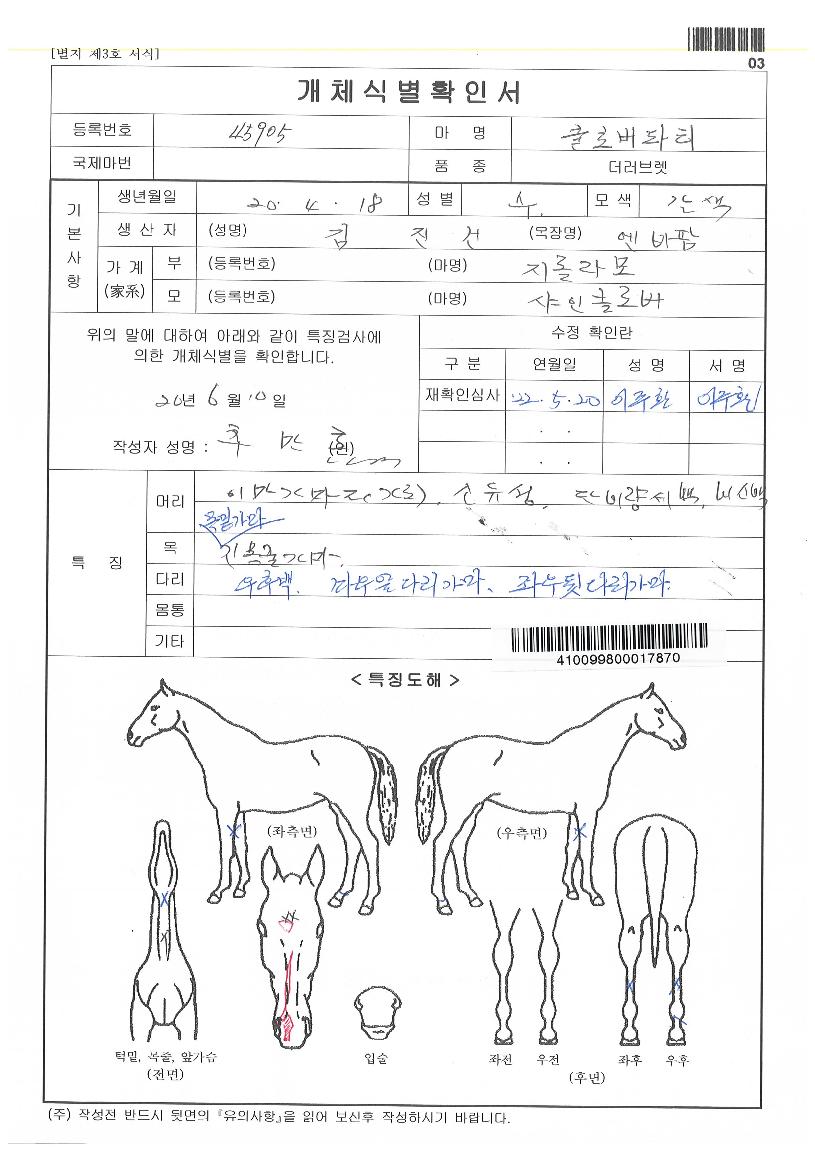 [별지 제3호 서식]
03
개체식별확인서
등록번호 43905 마 명 클로버파티
국제마번 품 종 더러브렛
기본사항
생년월일 20. 4. 18 성별 수. 모색 갈색
생 산 자 (성명) 김 진 건 (목장명) 엔바팜
가 계 (家系) 부 (등록번호) (마명) 지롤라모
모 (등록번호) (마명) 샤인클로버
위의 말에 대하여 아래와 같이 특징검사에
의한 개체식별을 확인합니다.
20년 6월 10일
작성자 성명 : (인)
수정 확인란
구 분 연월일 성 명 서 명
재확인심사 '22. 5. 20 이주환 이주환
. .
. .
특 징
머리
목
다리 우후백. 좌우앞다리가마. 좌우뒷다리가마.
몸통
기타
410099800017870
< 특징도해 >
(좌측면) (우측면)
턱밑, 목줄, 앞가슴
(전면)
입술
좌전 우전 좌후 우후
(후면)
(주) 작성전 반드시 뒷면의 『유의사항』을 읽어 보신후 작성하시기 바랍니다.